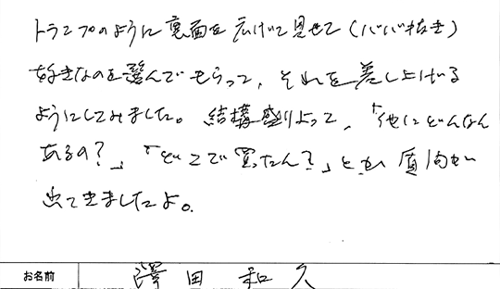 トランプのように裏面を広げて見せて(ババ抜き)
好きなのを選んでもらって、それを差し上げる
ようにしてみました。結構盛り上って、「他にどんなん
あるの?」、「どこで買たん?」とか質問が
出てきましたよ。
お名前 澤田 和久